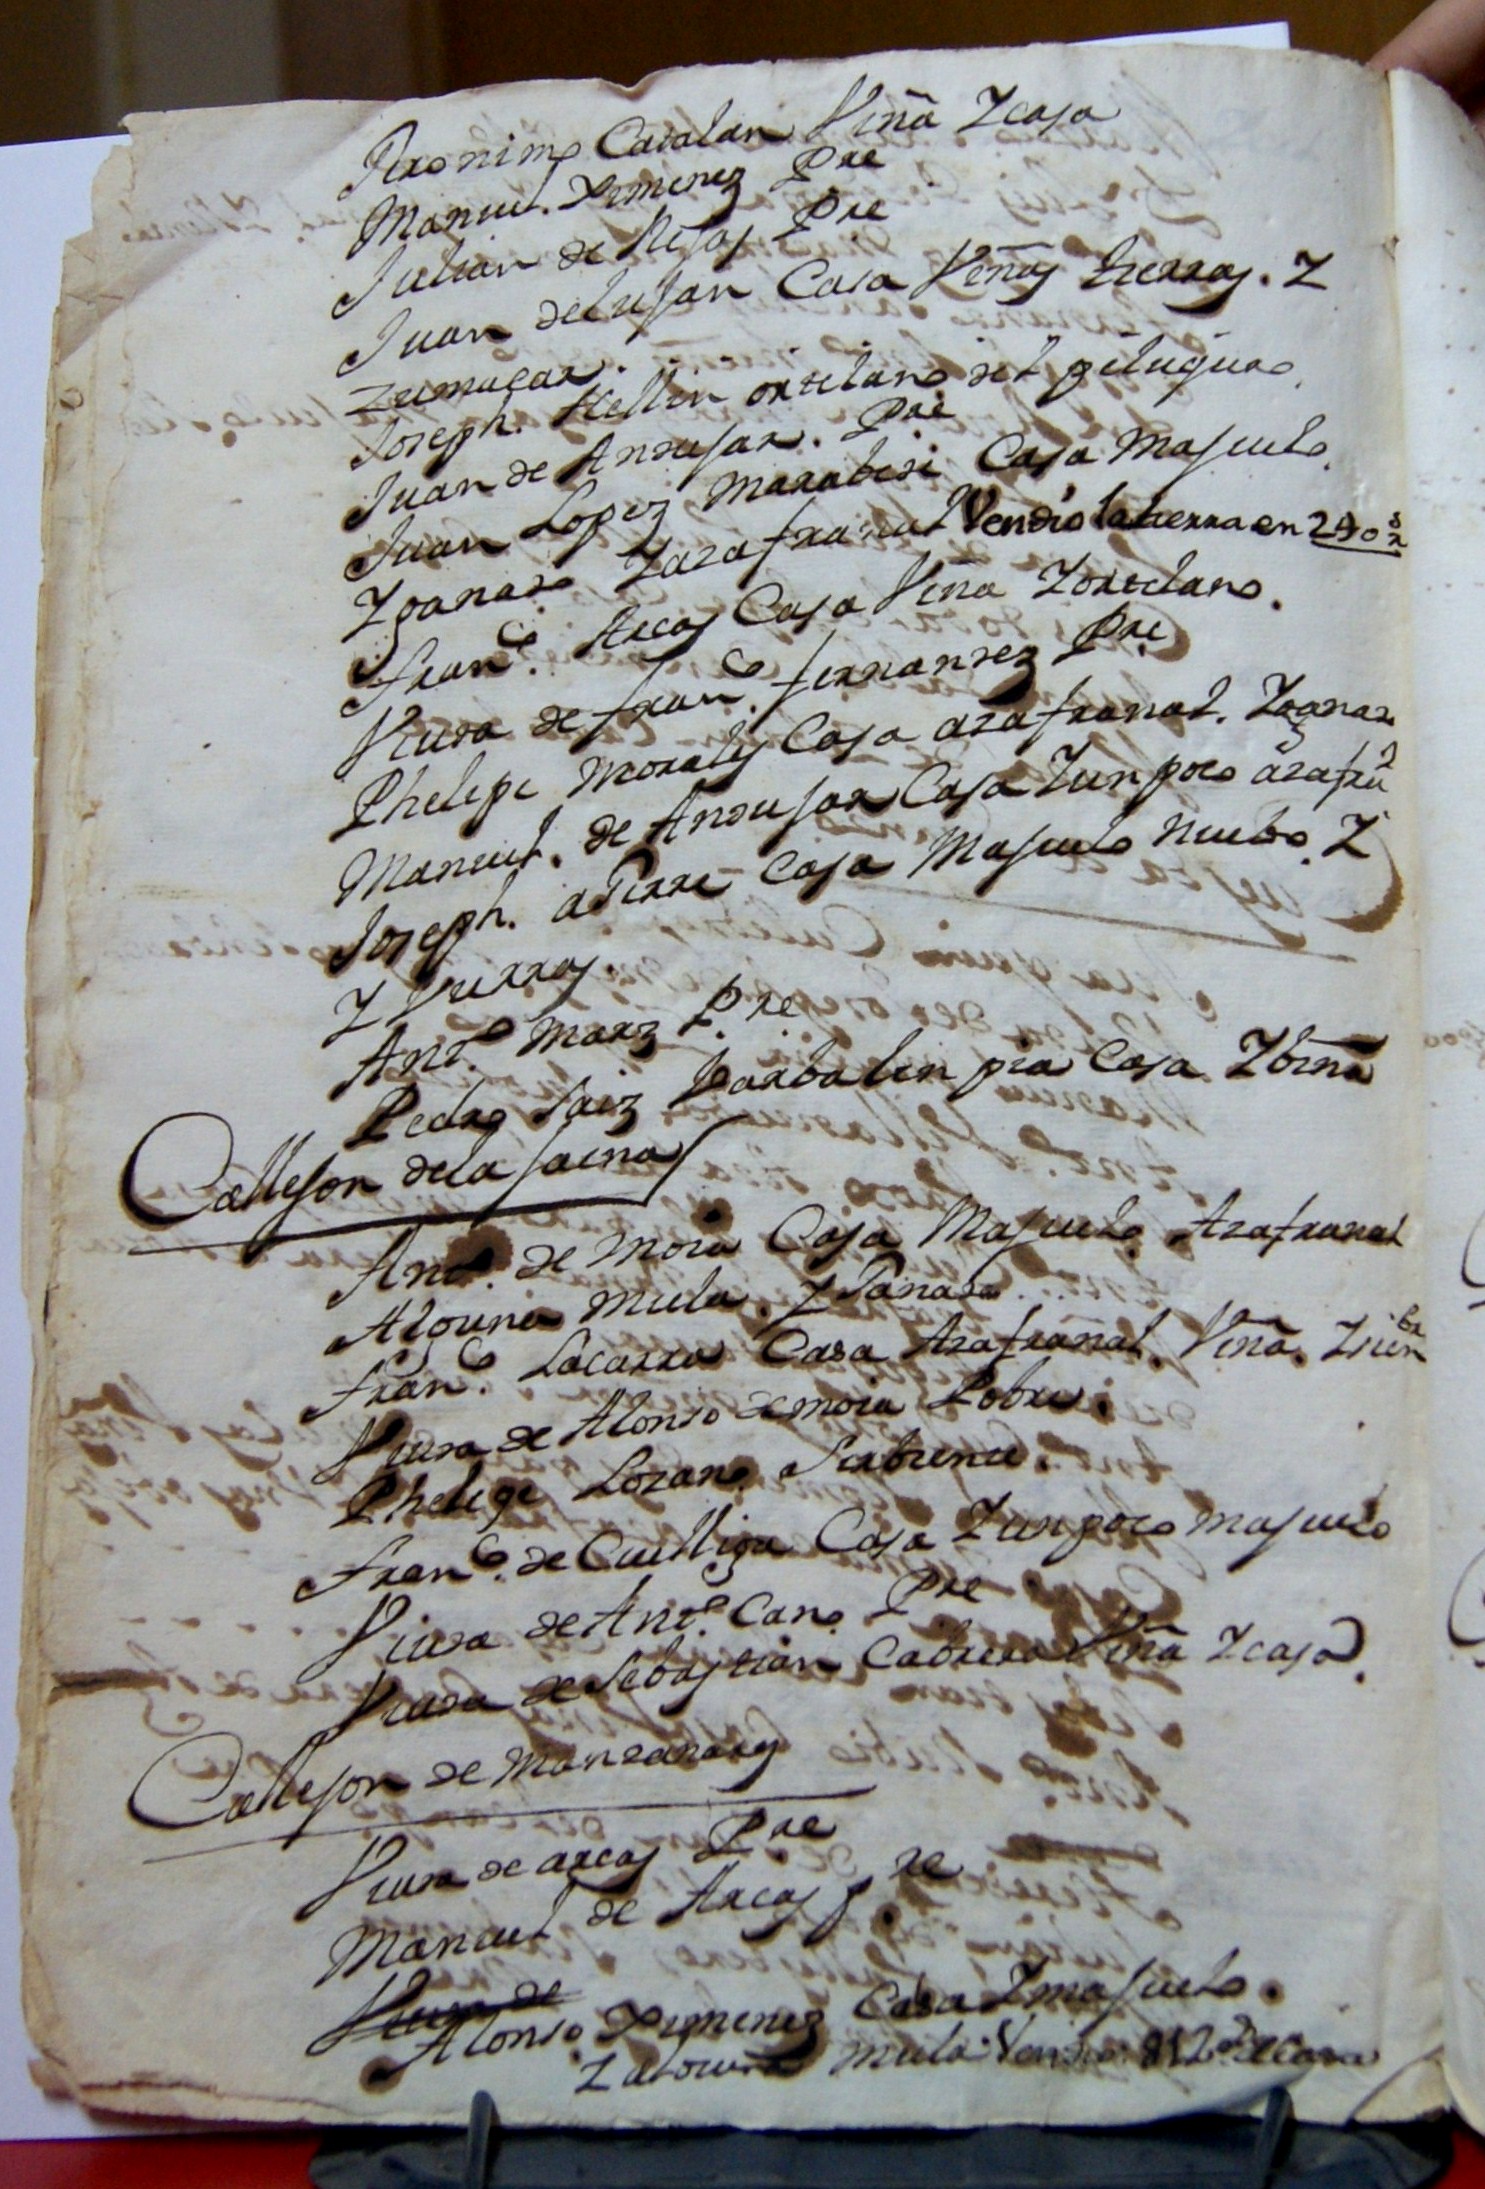 Jeronimo Catalan Viña Y casa
Manuel. Ximenez Pre
Julian de Rejas Pre
Juan de lujan Casa Viñas tierras. Y
zumacar.
Joseph. Hellin ortelano del peluquero.
Juan de Andujar. Pre
Juan Lopez Marabedi Casa Majuelo.
Y ganado Yazafranal Vendio la tierra en 240 rs
Franco. Arcos Casa Viña Y ortelano.
Viuda de franco. fernandez Pre
Phelipe Morales Casa azafranal. Y ganado
Manuel. de Andujar Casa Y un poco azafral
Joseph. aparre Casa Majuelo Nuebo. Y
Y Burras
Anto. Marz Pre
Pedro Saiz barbalinpia Casa Y biña
Callejon de la Jaena
Anto. de Mora Casa Majuelo Azafranal
Alguna Mula. Y Ganado
Franco. Lacarra Casa Azafranal. Viña.
Viuda de Alonso de mora Pobre.
Phelipe Lozano Sirbiente.
Franco. de Cuelliga Casa Y un poco majuelo
Viuda de Anto. Cano Pre
Viuda de Sebastian Cabrera Viña Y casa.
Callejon de Manzanares
Viuda de arcos Pre
Manuel de Arcos Pre
Viuda de
Alonso Ximenez Casa Y majuelo.
Y alguna mula Vendio